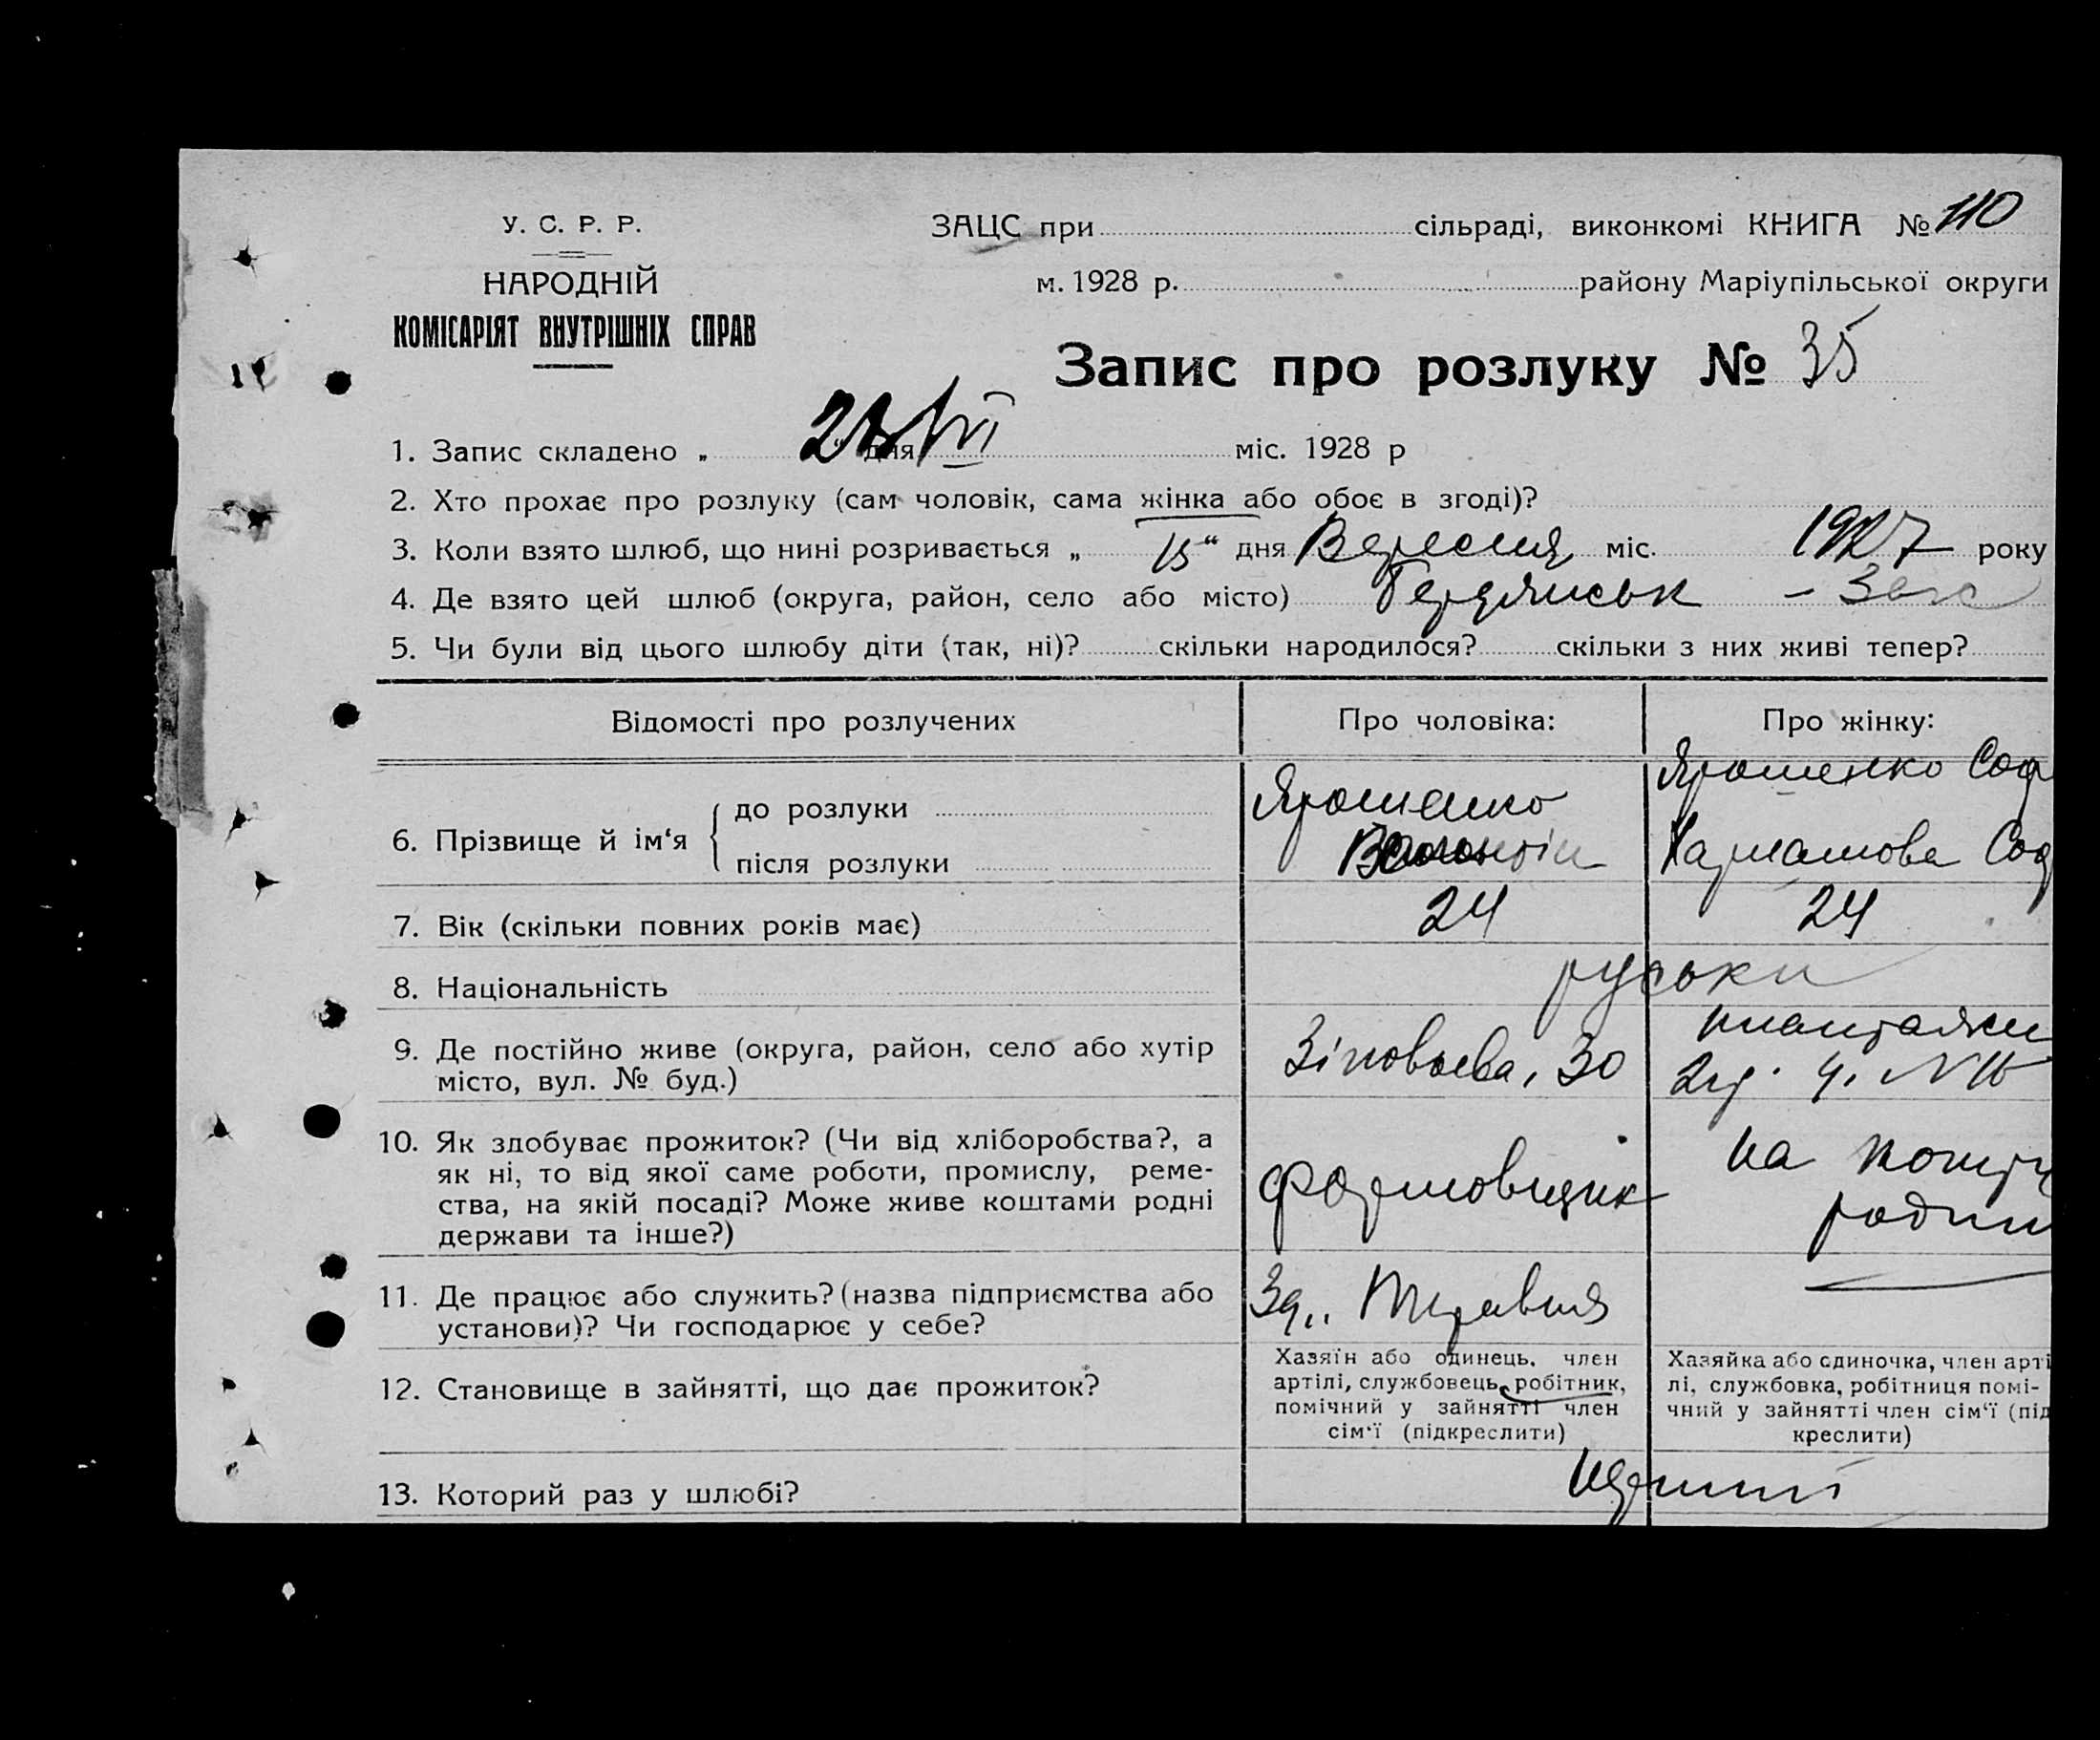 У. С. Р. Р.
НАРОДНІЙ
КОМІСАРІЯТ ВНУТРІШНІХ СПРАВ
ЗАЦС при сільраді, виконкомі КНИГА № 110
м. 1928 р. району Маріупільської округи
Запис про розлуку № 35
1. Запис складено „ дня VI міс. 1928 р
2. Хто прохає про розлуку (сам чоловік, сама жінка або обоє в згоді)?
3. Коли взято шлюб, що нині розривається „ 15 “ дня Вересня міс. 1927 року
4. Де взято цей шлюб (округа, район, село або місто) Бердянськ – Загс
5. Чи були від цього шлюбу діти (так, ні)? скільки народилося? скільки з них живі тепер?
Відомості про розлучених
Про чоловіка:
Про жінку:
6. Прізвище й ім‘я { до розлуки
після розлуки
Ярошенко
Валентін
Ярошенко Соф
Соф
7. Вік (скільки повних років має) 24 24
8. Національність руськи
9. Де постійно живе (округа, район, село або хутір
місто, вул. № буд.)
Зіновьева, 30
10. Як здобуває прожиток? (Чи від хліборобства?, а
як ні, то від якої саме роботи, промислу, реме-
ства, на якій посаді? Може живе коштами родні
держави та інше?)
Формовщик
на кошти
родин
11. Де працює або служить? (назва підприємства або
установи)? Чи господарює у себе?
12. Становище в зайнятті, що дає прожиток?
Хазяїн або одинець, член
артілі, службовець, робітник,
помічний у зайнятті член
сім‘ї (підкреслити)
Хазяйка або одиночка, член арті
лі, службовка, робітниця помі-
чний у зайнятті член сім‘ї (під
креслити)
13. Которий раз у шлюбі? перший